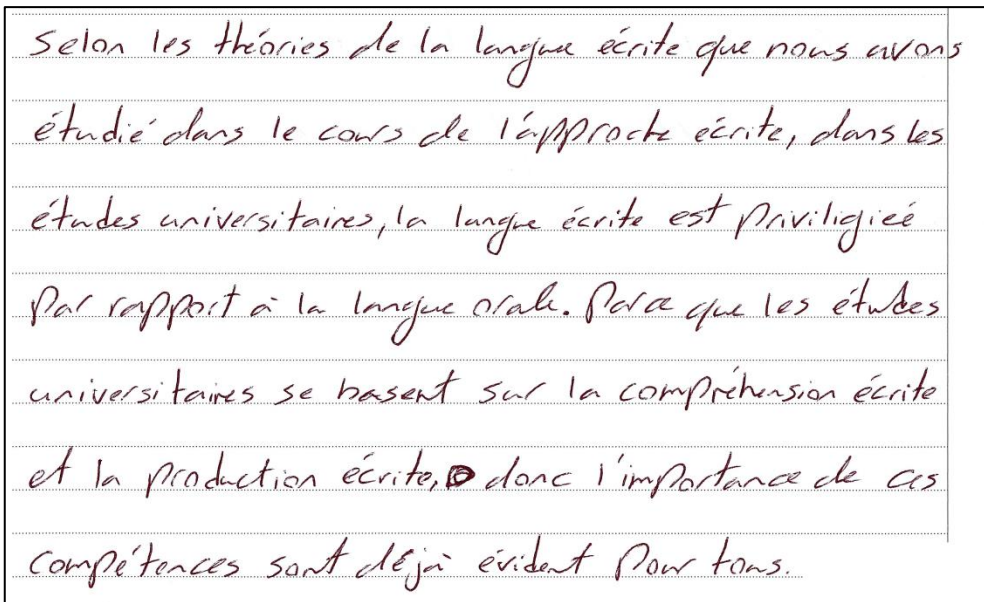 Selon les théories de la langue écrite que nous avons
étudié dans le cours de l'approche écrite, dans les
études universitaires, la langue écrite est priviligieé
par rapport à la langue orale. Parce que les études
universitaires se basent sur la compréhension écrite
et la production écrite, donc l'importance de ces
compétences sont déjà évident pour tous.